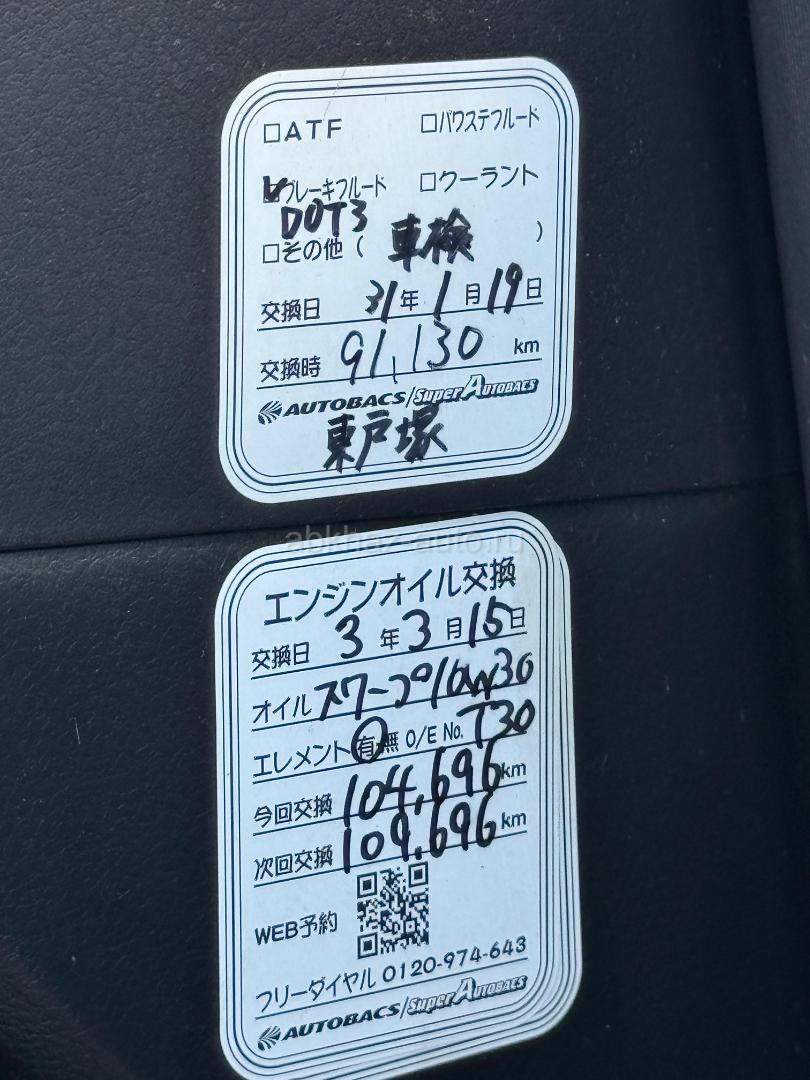 □ATF □パワステフルード
☑ブレーキフルード □クーラント
DOT3
□その他( 車検 )
交換日 31年1月19日
交換時 91,130 km
AUTOBACS/Super AUTOBACS
東戸塚
abkhaz-auto.ru
エンジンオイル交換
交換日 3年3月15日
オイル スワープ10W30
エレメント 有・無 O/E No. T30
今回交換 104,696km
次回交換 109,696km
WEB予約
フリーダイヤル 0120-974-643
AUTOBACS/Super AUTOBACS